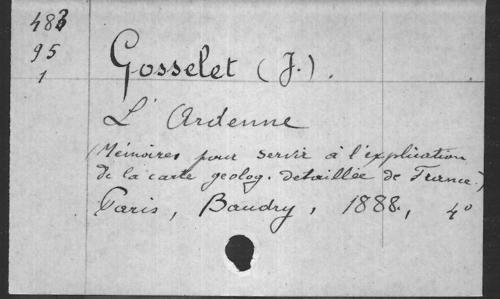 483
95
1
Gosselet (J.).
L'Ardenne
(Mémoires pour servir à l'explication
de la carte géolog. détaillée de France.)
Paris, Baudry, 1888., 4º